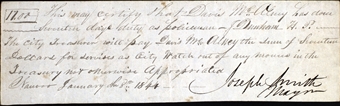 17.00 This may certify that Davis McOlney has done
Seventeen days duty as Policeman of Nauvoo
The City Treasurer will pay Davis McOlney the sum of Seventeen
Dollars for services as City Watch out of any monies in the
Treasury not otherwise Appropriated
Nauvoo January 1844
Joseph Smith
Mayor